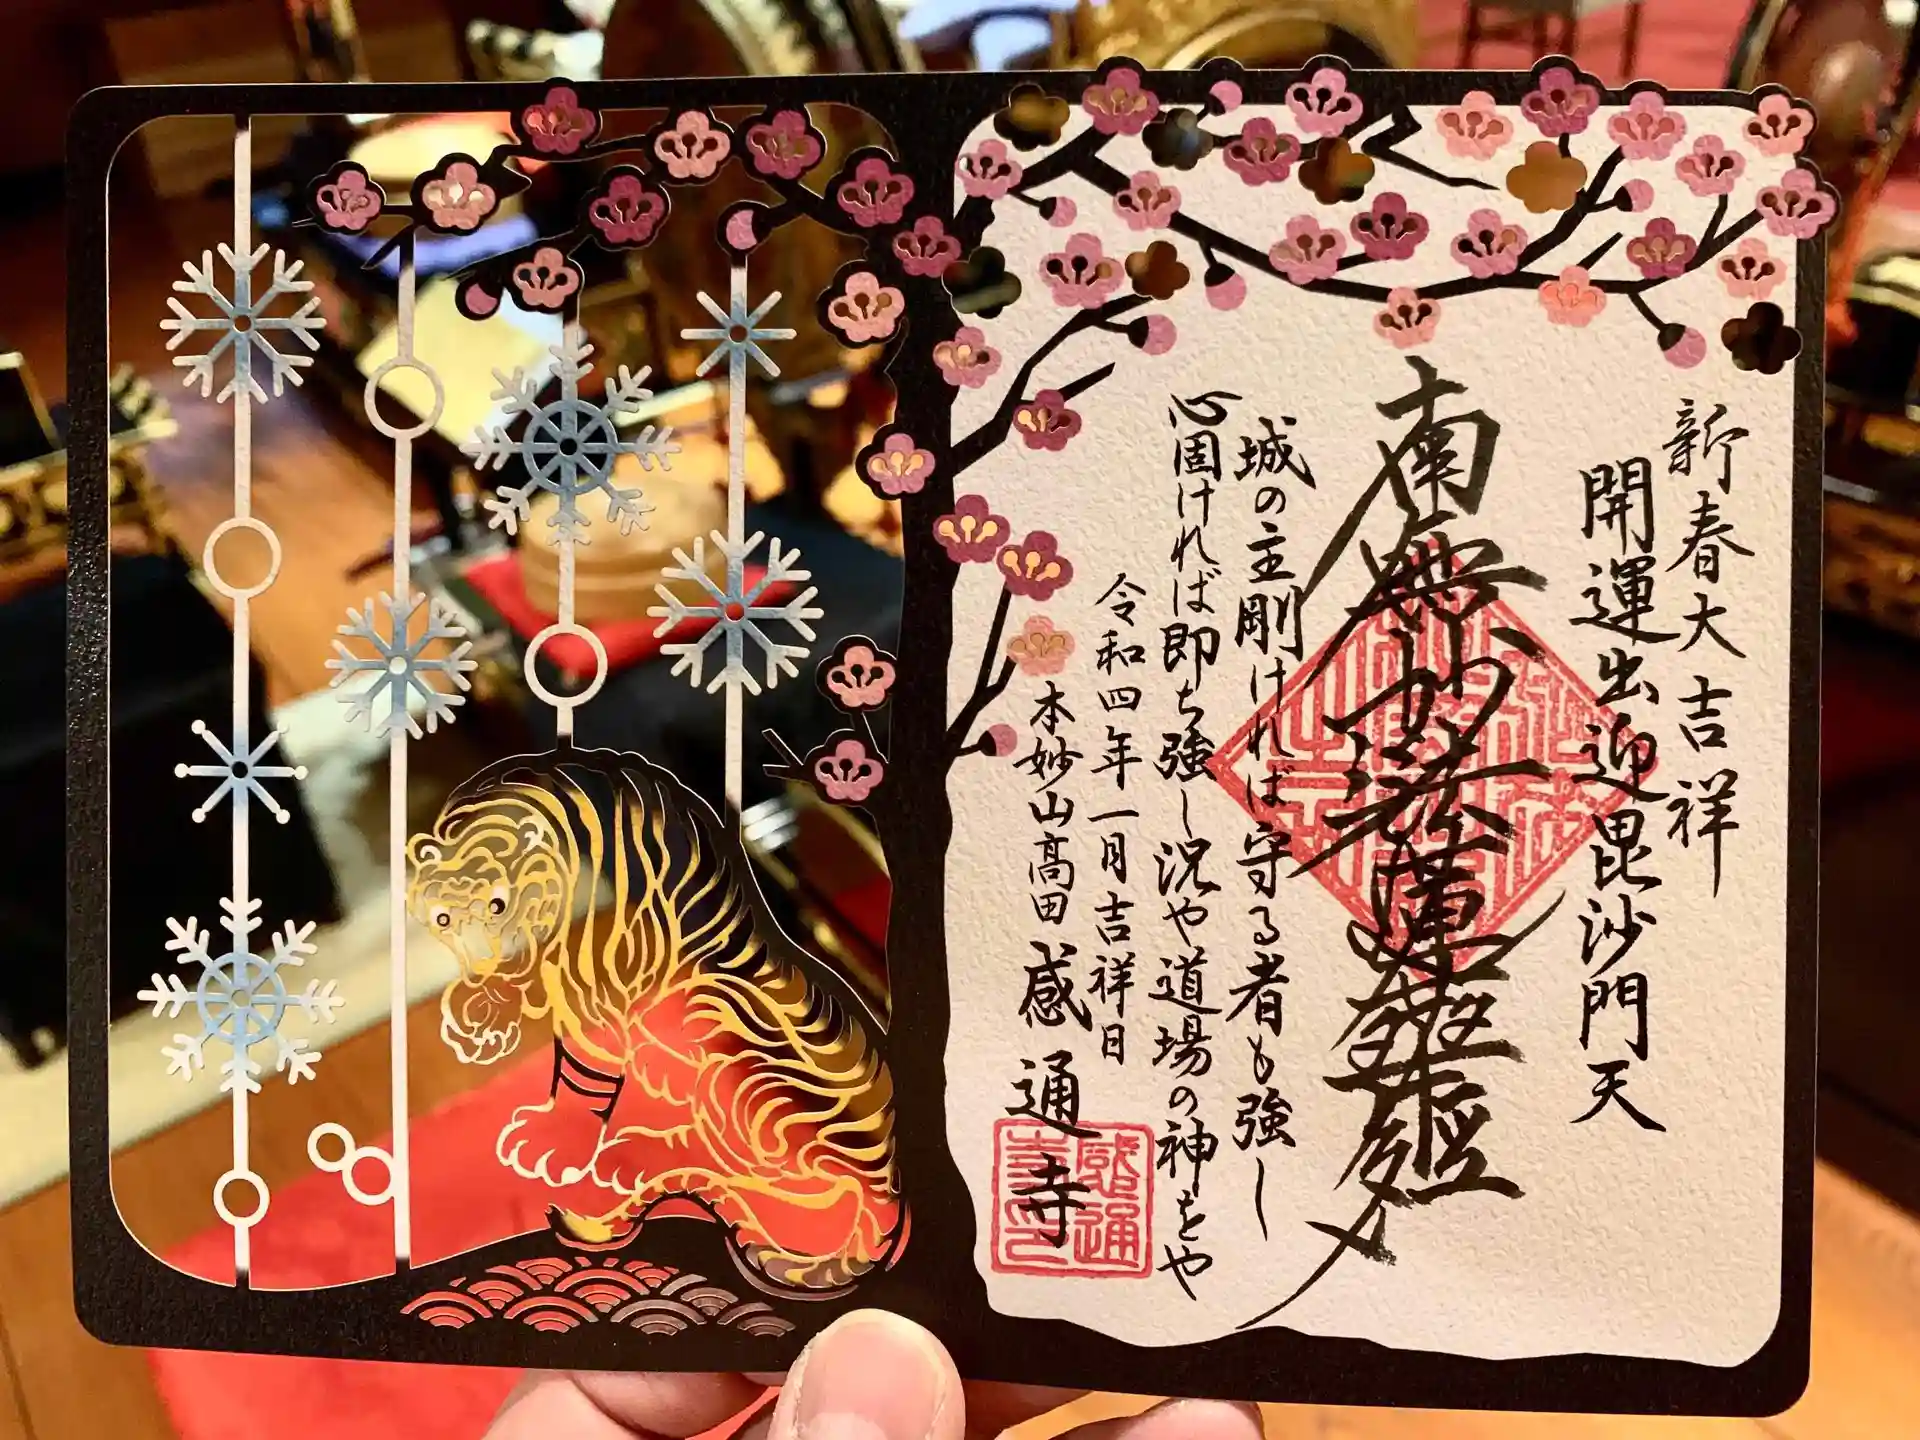 新春大吉祥
開運出迎毘沙門天
南無妙法蓮華経
城の主剛ければ守る者も強し
心固ければ即ち強し況や道場の神をや
令和四年一月吉祥日
本妙山高田感通寺
感通
寺印